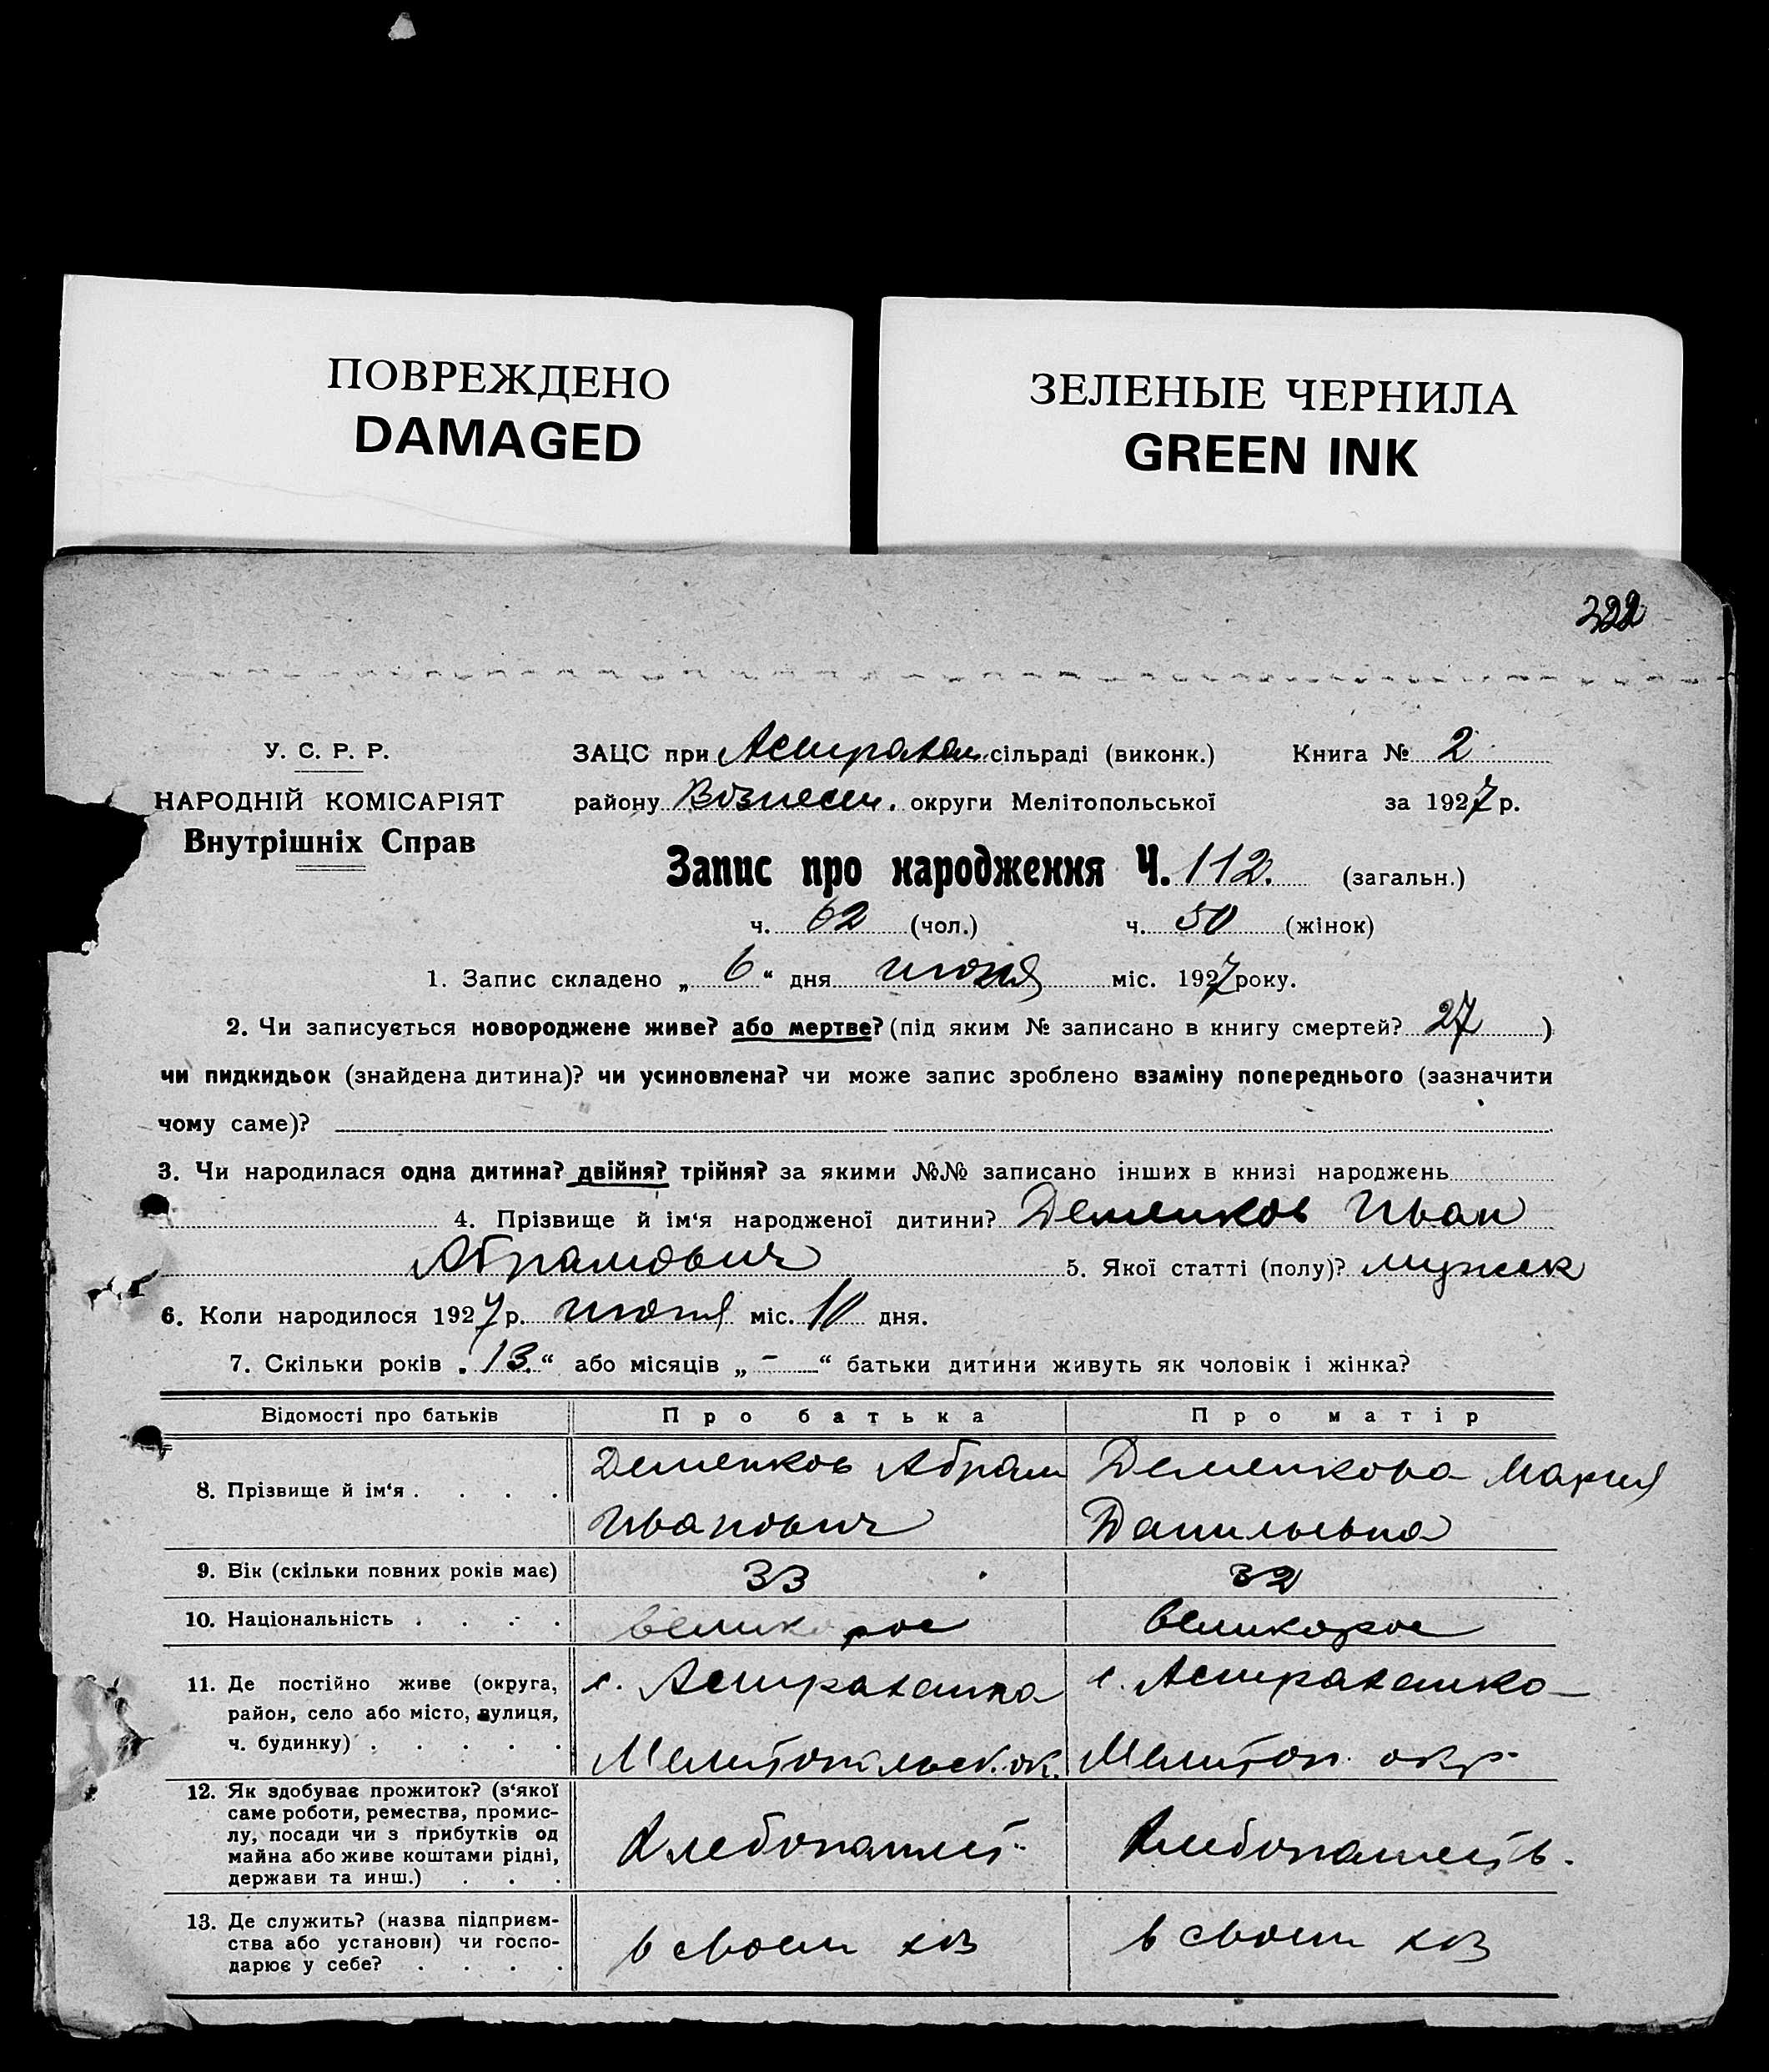 ПОВРЕЖДЕНО
DAMAGED
ЗЕЛЕНЫЕ ЧЕРНИЛА
GREEN INK
322
У. С. Р. Р.
НАРОДНІЙ КОМІСАРІЯТ
Внутрішніх Справ
ЗАЦС при Астрахан сільраді (виконк.) Книга № 2
району Вознесен. округи Мелітопольської за 1927 р.
Запис про народження Ч. 112. (загальн.)
ч. 62 (чол.) ч. 50 (жінок)
1. Запис складено „ 6 “ дня июля міс. 1927 року.
2. Чи записується новороджене живе? або мертве? (під яким № записано в книгу смертей? 27 )
чи пидкидьок (знайдена дитина)? чи усиновлена? чи може запис зроблено взаміну попереднього (зазначити
чому саме)?
3. Чи народилася одна дитина? двійня? трійня? за якими №№ записано інших в книзі народжень
4. Прізвище й ім‘я народженої дитини? Деменков Иван
Абрамович 5. Якої статті (полу)? мужск
6. Коли народилося 1927 р. июня міс. 10 дня.
7. Скільки років „ 13. “ або місяців „ - “ батьки дитини живуть як чоловік і жінка?
Відомості про батьків Про батька Про матір
8. Прізвище й ім‘я . . . . Деменков Абрам Деменкова Мария
Иванович Данильевна
9. Вік (скільки повних років має) 33 32
10. Національність . . . . великорос великорос
11. Де постійно живе (округа, с. Астраханка с. Астраханка
район, село або місто, вулиця,
ч. будинку) . . . . . Мелитопольск. ок. Мелитоп. окр.
12. Як здобуває прожиток? (з‘якої
саме роботи, ремества, промис-
лу, посади чи з прибутків од
майна або живе коштами рідні, Хлебопашест. Хлебопашеств.
держави та инш.) . . .
13. Де служить? (назва підприєм-
ства або установи) чи госпо- в своем хоз в своем хоз
дарює у себе? . . . .